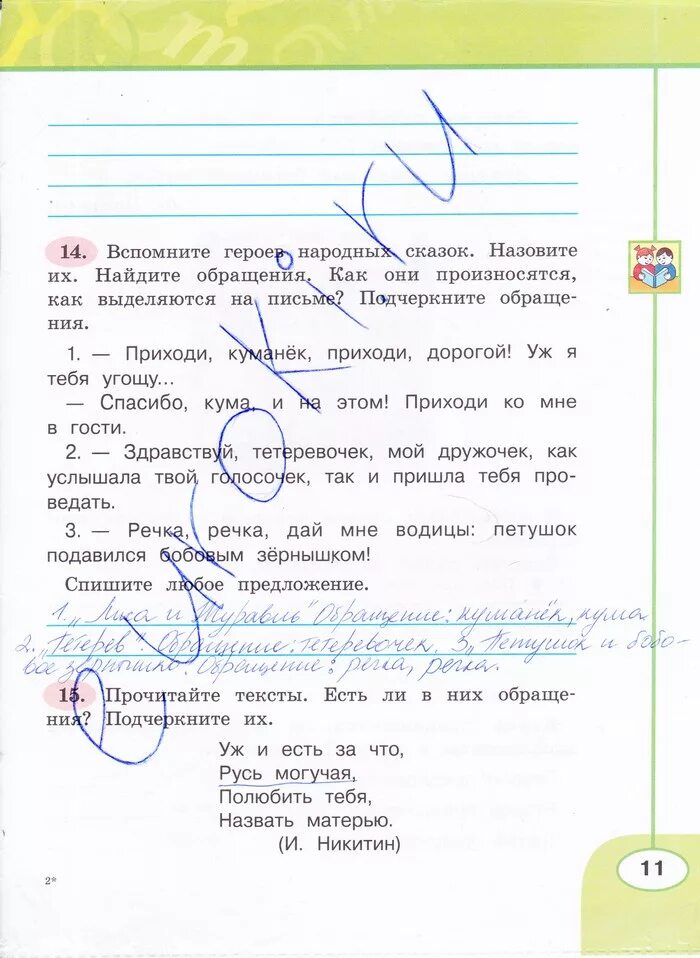 14. Вспомните героев народных сказок. Назовите
их. Найдите обращения. Как они произносятся,
как выделяются на письме? Подчеркните обраще-
ния.
1. — Приходи, куманёк, приходи, дорогой! Уж я
тебя угощу...
— Спасибо, кума, и на этом! Приходи ко мне
в гости.
2. — Здравствуй, тетеревочек, мой дружочек, как
услышала твой голосочек, так и пришла тебя про-
ведать.
3. — Речка, речка, дай мне водицы: петушок
подавился бобовым зёрнышком!
Спишите любое предложение.
1. „Лиса и Журавль" Обращение: куманёк, кума
2. „Тетерев" Обращение: тетеревочек. 3. „Петушок и бобо-
вое зёрнышко. Обращение: речка, речка.
15. Прочитайте тексты. Есть ли в них обраще-
ния? Подчеркните их.
Уж и есть за что,
Русь могучая,
Полюбить тебя,
Назвать матерью.
(И. Никитин)
2*
11
eurokI.ru